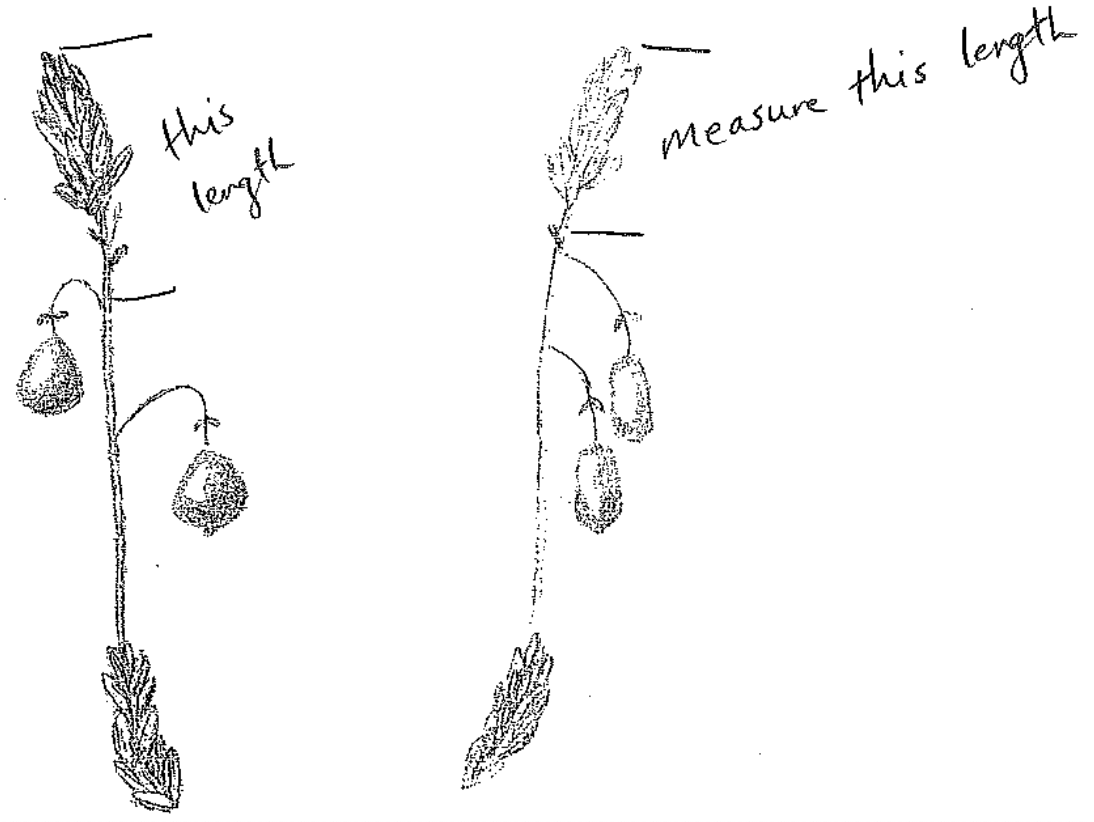 this
length
measure this length